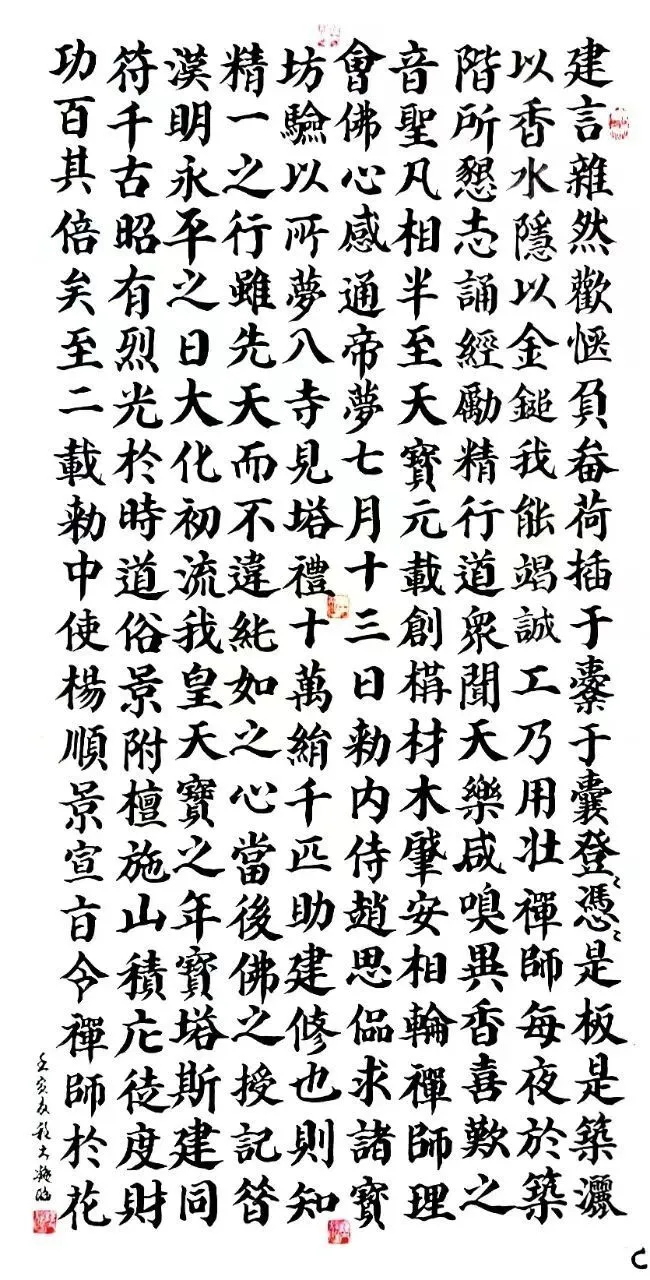 建言雜然歡愜負畚荷插于橐于囊登登憑憑是板是築灑
以香水隱以金鎚我能竭誠工乃用壯禪師每夜於築
階所懇志誦經勵精行道衆聞天樂咸嗅異香喜歎之
音聖凡相半至天寶元載創構材木肇安相輪禪師理
會佛心感通帝夢七月十三日勑内侍趙思偘求諸寶
坊驗以所夢入寺見塔禮十萬絹千匹助建修也則知
精一之行雖先天而不違純如之心當後佛之授記昔
漢明永平之日大化初流我皇天寶之年寶塔斯建同
符千古昭有烈光於時道俗景附檀施山積庀徒度財
功百其倍矣至二載勑中使楊順景宣旨令禪師於花